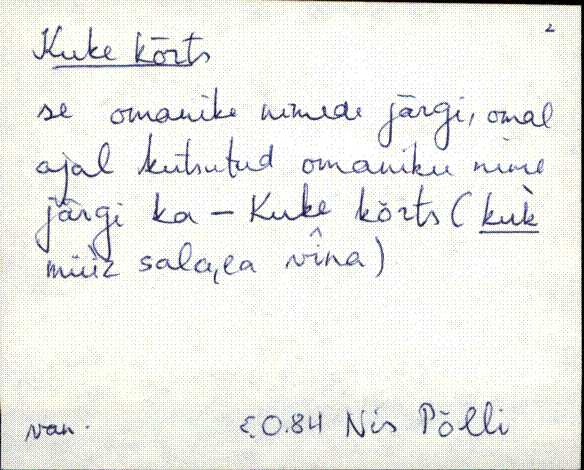 2
Kuke kõrts
se omanike nimede järgi, omal
ajal kutsutud omaniku nime
järgi ka – Kuke kõrts (kuk̀
müüz sala,ea vîna)
van. E.0.84 Nis Põlli